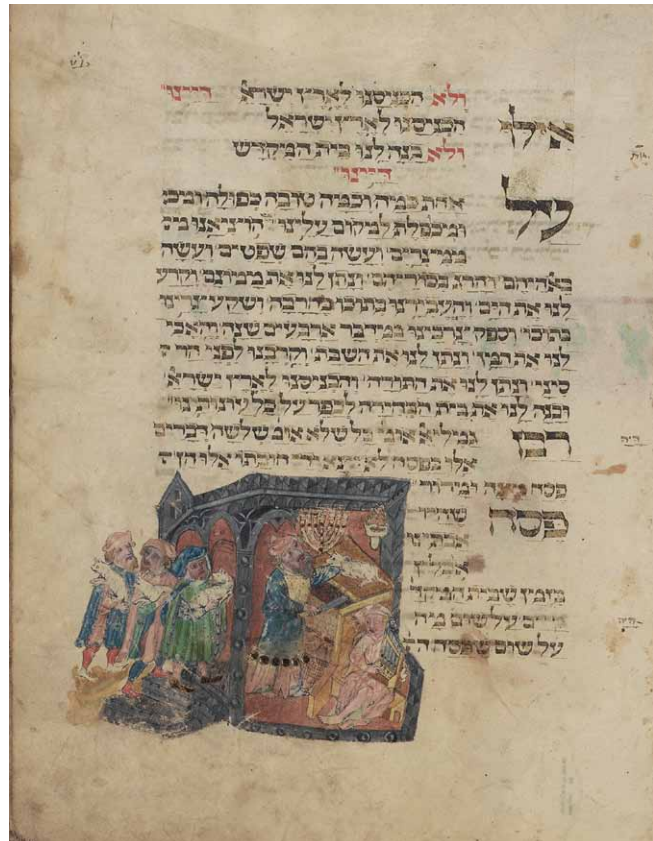 ולא הכניסנו לארץ ישרא דיינו
אילו הכניסנו לארץ ישראל
ולא בנה לנו בית המקדש
דיינו
על אחת כמה וכמה טובה כפולה ומכו
ומכופלת למקום עלינו הוציאנו
ממצרים ועשה בהם שפטים ועשה
באלהיהם והרג בכוריהם ונתן לנו את ממונם וקרע
לנו את הים והעבירנו בתוכו בחרבה ושקע צרינו
בתוכו וספק צרכינו במדבר ארבעים שנה והאכי
לנו את המן ונתן לנו את השבת וקרבנו לפני הר ס
סיני ונתן לנו את התורה והכניסנו לארץ ישרא
ובנה לנו את בית הבחירה לכפר על כל עונותינו
רבן גמליא אומ כל שלא אומ שלשה דברים
אלו בפסח לא יצא ידי חובתו אלו הן
פסח מצה ומרור
פסח שהיו
אבתינו
אוכלין
בזמן שבית המקד
קיים על שום מה
על שום שפסח